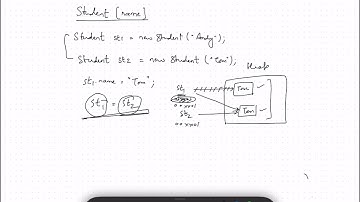 Student [name]
Student st1 = new Student ("Andy");
Student st2 = new Student ("Tom");
st1.name = "Tom";
st1 = st2
Heap
st1
Tom
st2
Tom